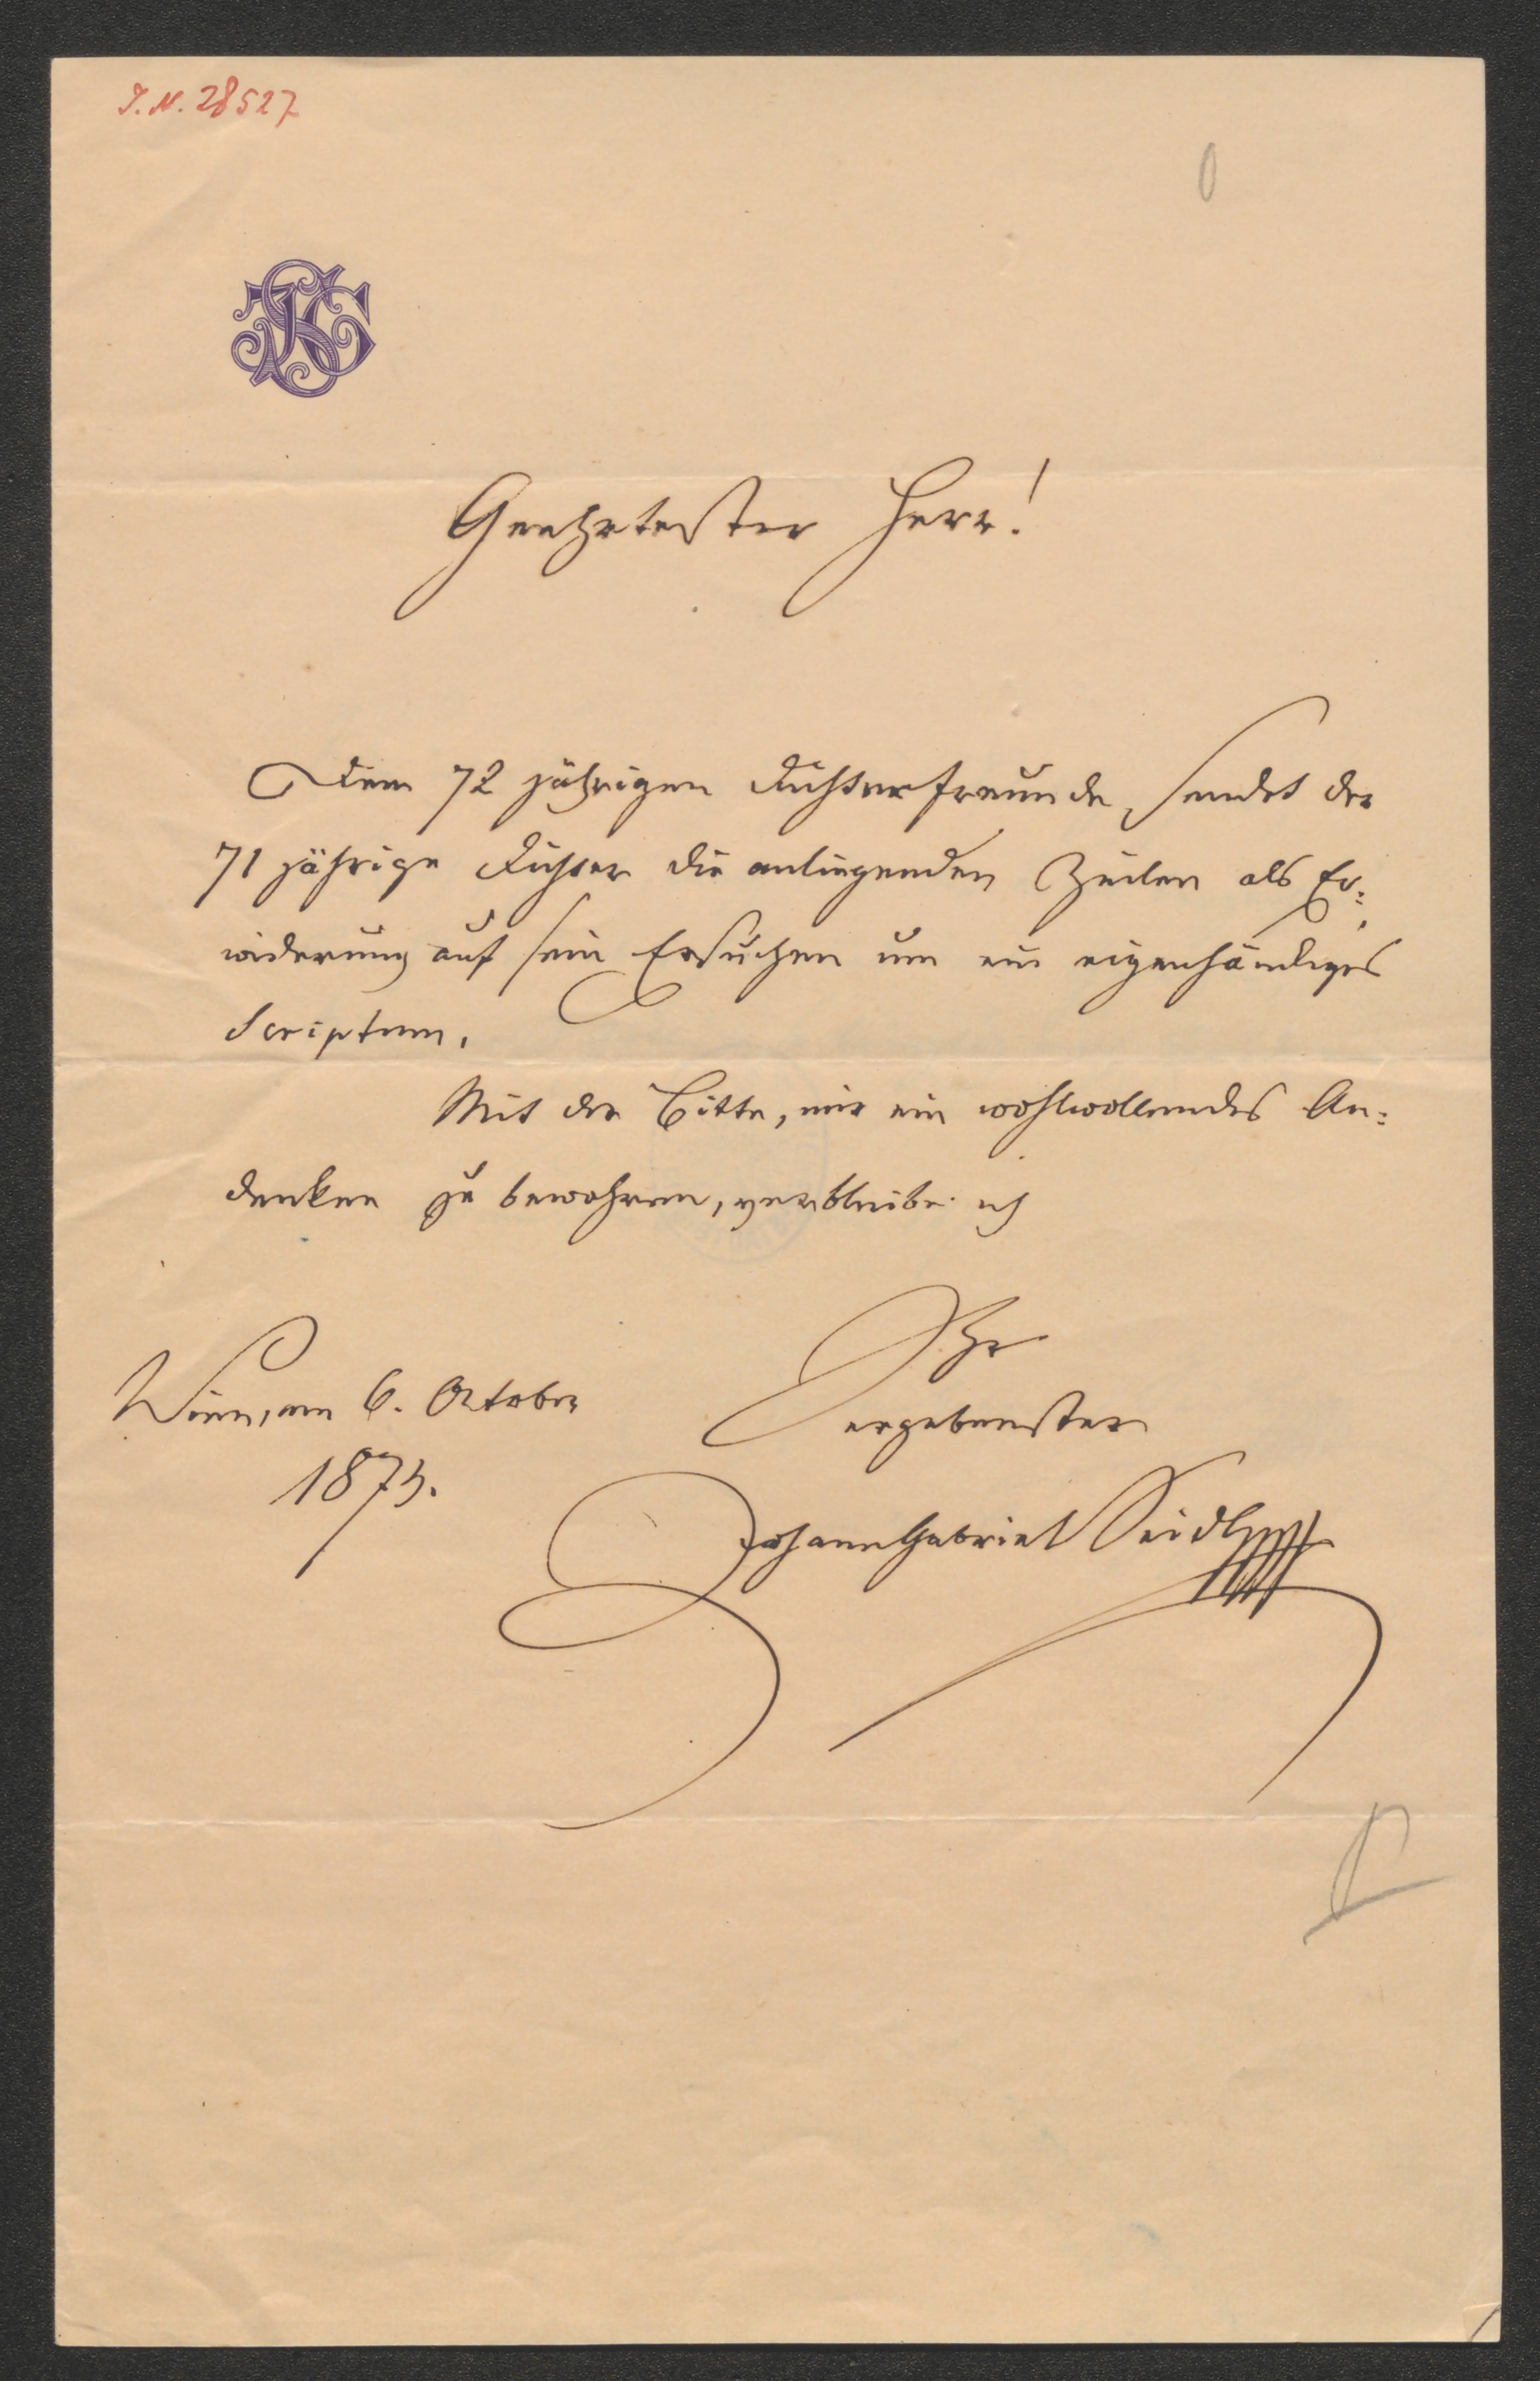 I. N. 28527
JGS
Geehrtester Herr!
Dem 72 jährigen Dichterfreunde sendet der
71 jährige Dichter die anliegenden Zeilen als Er=
widerung auf sein Ersuchen um ein eigenhändiges
Scriptum.
Mit der Bitte, mir ein wohlwollendes An=
denken zu bewahren, verbleibe ich
Ihr
Wien, am 6. October
ergebenster
1875.
Johann Gabriel Seidl